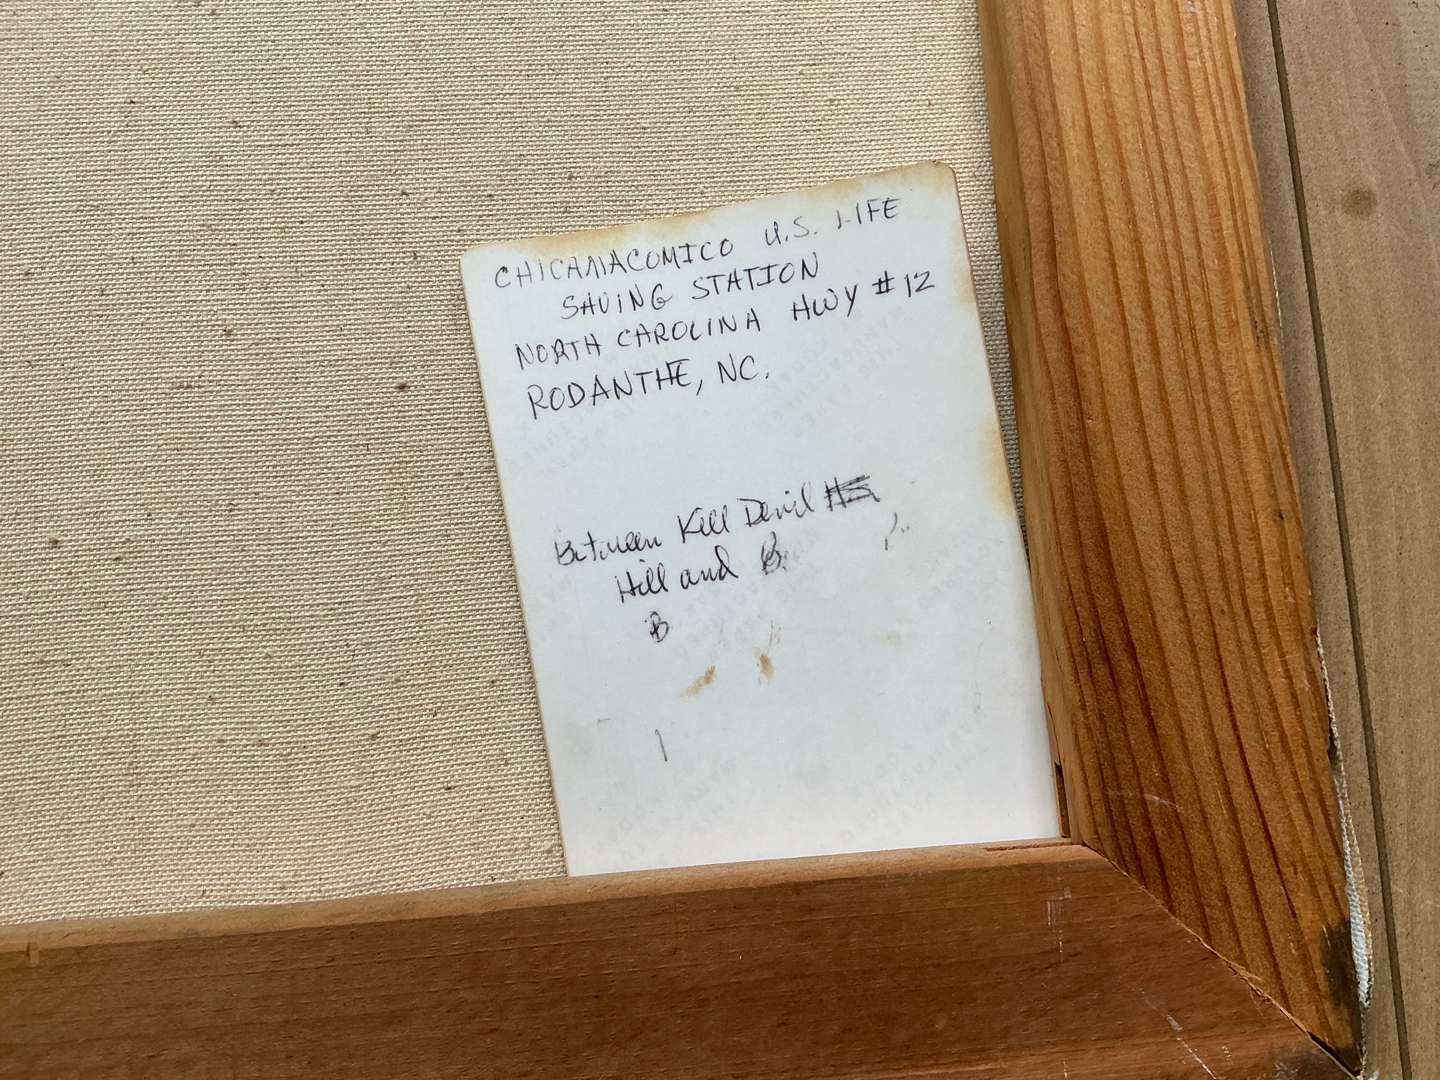 CHICAMACOMICO U.S. LIFE
SAVING STATION
NORTH CAROLINA HWY #12
RODANTHE, NC.
Between Kill Devil
Hill and B
B